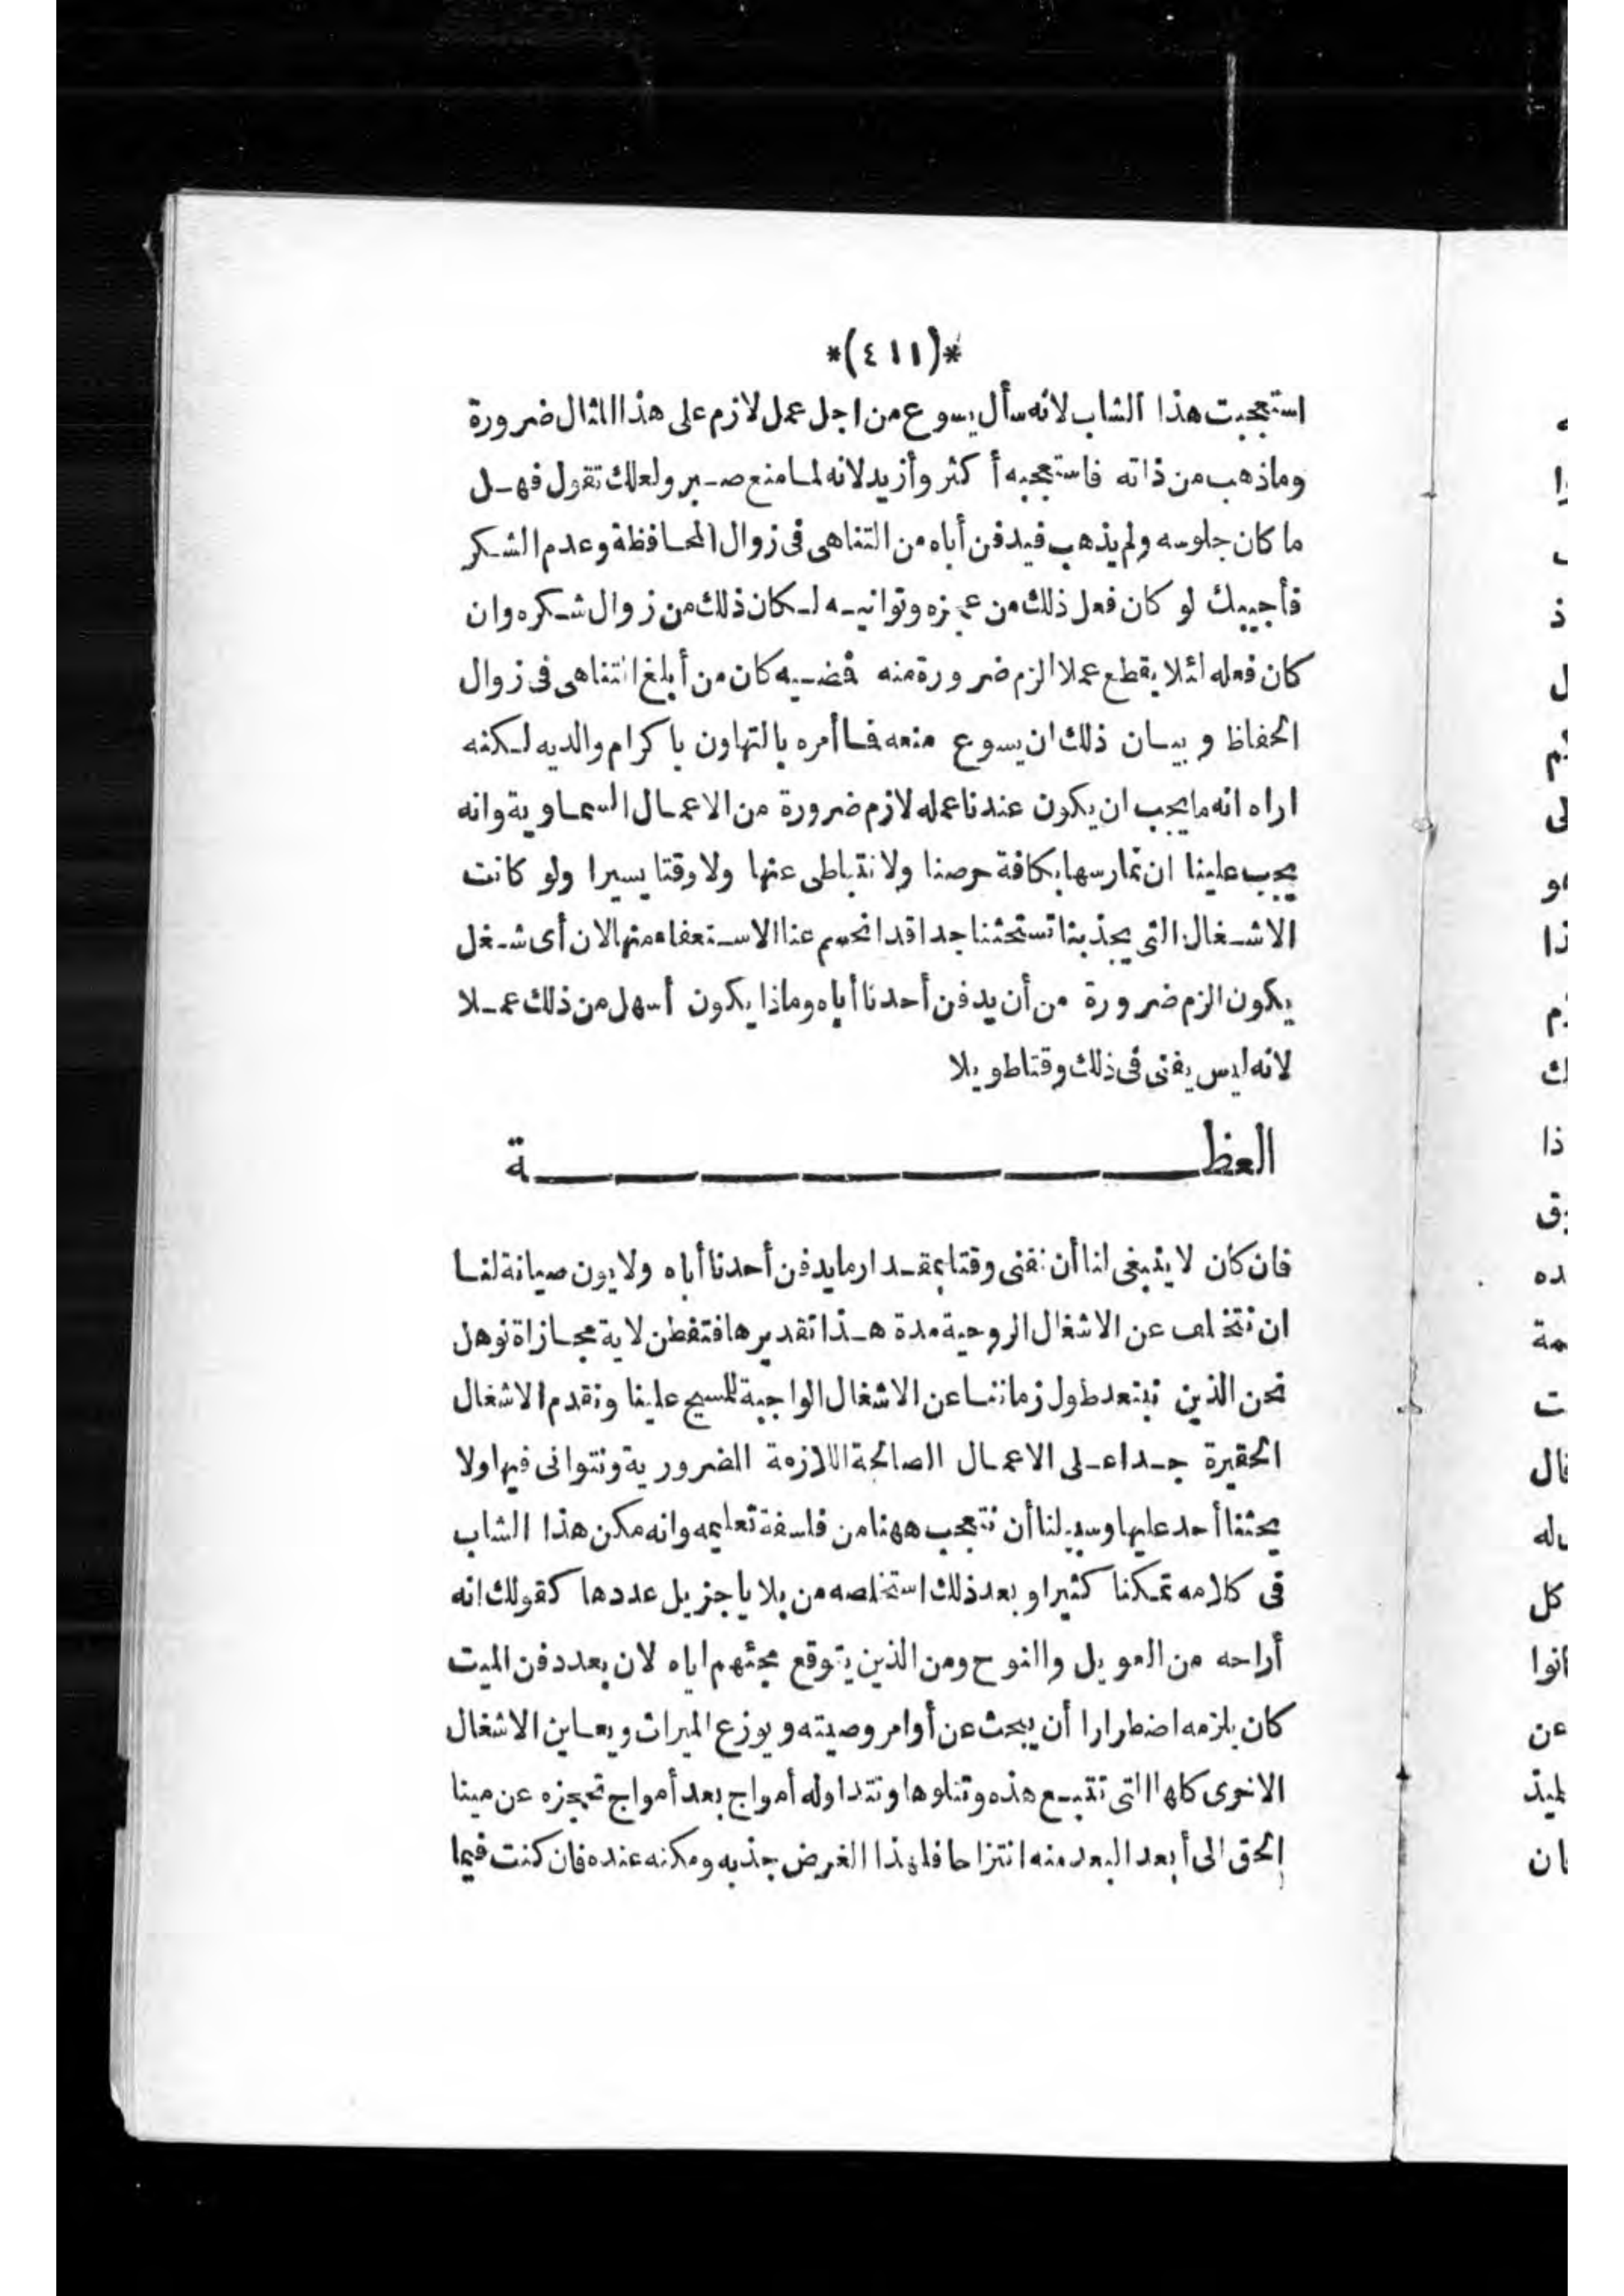 *(٤١١)*
استعجبت هذا الشاب لانه سأل يسوع من اجل عمل لازم على هذا المثال ضرورة
وماذهب من ذاته فاستعجبه أكثر وأزيد لانه لما منع صبر ولعلك تقول فهل
ما كان جلوسه ولم يذهب فيدفن أباه من التناهى فى زوال المحافظة وعدم الشكر
فأجيبك لو كان فعل ذلك من عجزه وتوانيه لكان ذلك من زوال شكره وان
كان فعله لئلا يقطع عملا الزم ضرورة منه فضيه كان من أبلغ التناهى فى زوال
الحفاظ وبيان ذلك ان يسوع منعه فما أمره بالتهاون باكرام والديه لكنه
اراه انه ما يجب ان يكون عندنا عمله لازم ضرورة من الاعمال السماوية وانه
يجب علينا ان نمارسها بكافة حرصنا ولا نتباطى عنها ولا وقتا يسيرا ولو كانت
الاشغال التى يجذبنا تستحثنا جدا قد انحسم عنا الاستعفاء منها لان أى شغل
يكون الزم ضرورة من أن يدفن أحدنا أباه وماذا يكون أسهل من ذلك عملا
لانه ليس يفنى فى ذلك وقتا طويلا
العظة
فان كان لا ينبغى لنا أن نفنى وقتا بمقدار ما يدفن أحدنا أباه ولا يون صيانة لنا
ان نتخلف عن الاشغال الروحية مدة هذا تقديرها فتفطن لاية مجازاة نوهل
نحن الذين نبتعد طول زماننا عن الاشغال الواجبة للمسيح علينا ونقدم الاشغال
الحقيرة جدا على الاعمال الصالحة اللازمة الضرورية ونتوانى فيها ولا
يحثنا أحد عليها وسبيلنا أن نتعجب ههنا من فلسفة تعليمه وانه مكن هذا الشاب
فى كلامه تمكنا كثيرا وبعد ذلك استخلصه من بلايا جزيل عددها كقولك انه
أراحه من العويل والنوح ومن الذين يتوقع مجئهم اياه لان بعد دفن الميت
كان يلزمه اضطرارا أن يبحث عن أوامر وصيته ويوزع الميراث ويعاين الاشغال
الاخرى كلها التى تتبع هذه وتتلوها وتتداوله أمواج بعد أمواج تحجزه عن مينا
الحق الى أبعد البعد منه انتزاحا فلهذا الغرض جذبه ومكنه عنده فان كنت فيما